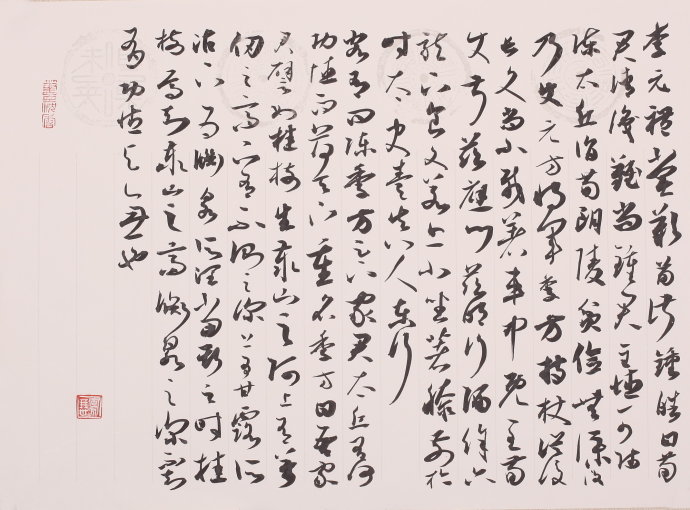 李元禮嘗歎荀淑鍾皓曰荀
君清識難尚鍾君至德可師
陳太丘詣荀朗陵貧儉無僕役
乃使元方將車季方持杖後從
長文尚小載著車中既至荀
使叔慈應門慈明行酒餘六
龍下食文若亦小坐著膝前於
時太史奏真人東行
客有問陳季方足下家君太丘有何
功德而荷天下重名季方曰吾家
君譬如桂樹生泰山之阿上有萬
仞之高下有不測之深上為甘露所
沾下為淵泉所潤當斯之時桂
樹焉知泰山之高淵泉之深不知
有功德與無也